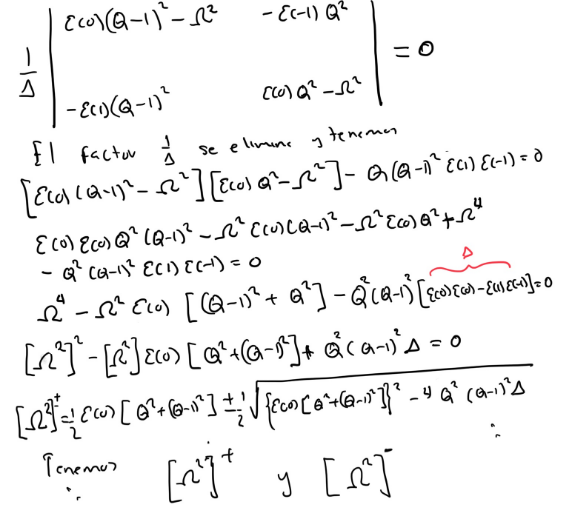 1/Δ | ε(0)(Q-1)² - Ω²   - ε(-1) Q² |
| - ε(1)(Q-1)²   ε(0) Q² - Ω² | = 0
El factor 1/Δ se elimina y tenemos
[ε(0)(Q-1)² - Ω²][ε(0) Q² - Ω²] - Q(Q-1)² ε(1) ε(-1) = 0
ε(0) ε(0) Q² (Q-1)² - Ω² ε(0)(Q-1)² - Ω² ε(0) Q² + Ω⁴
- Q² (Q-1)² ε(1) ε(-1) = 0
Δ
Ω⁴ - Ω² ε(0) [(Q-1)² + Q²] - Q²(Q-1)² [ε(0) ε(0) - ε(1) ε(-1)] = 0
[Ω²]² - [Ω²] ε(0) [Q² + (Q-1)²] + Q² (Q-1)² Δ = 0
[Ω²]⁺ = 1/2 ε(0) [Q² + (Q-1)²] ± 1/2 √{ε(0) [Q² + (Q-1)²]}² - 4 Q² (Q-1)² Δ
Tenemos [Ω²]⁺ y [Ω²]⁻